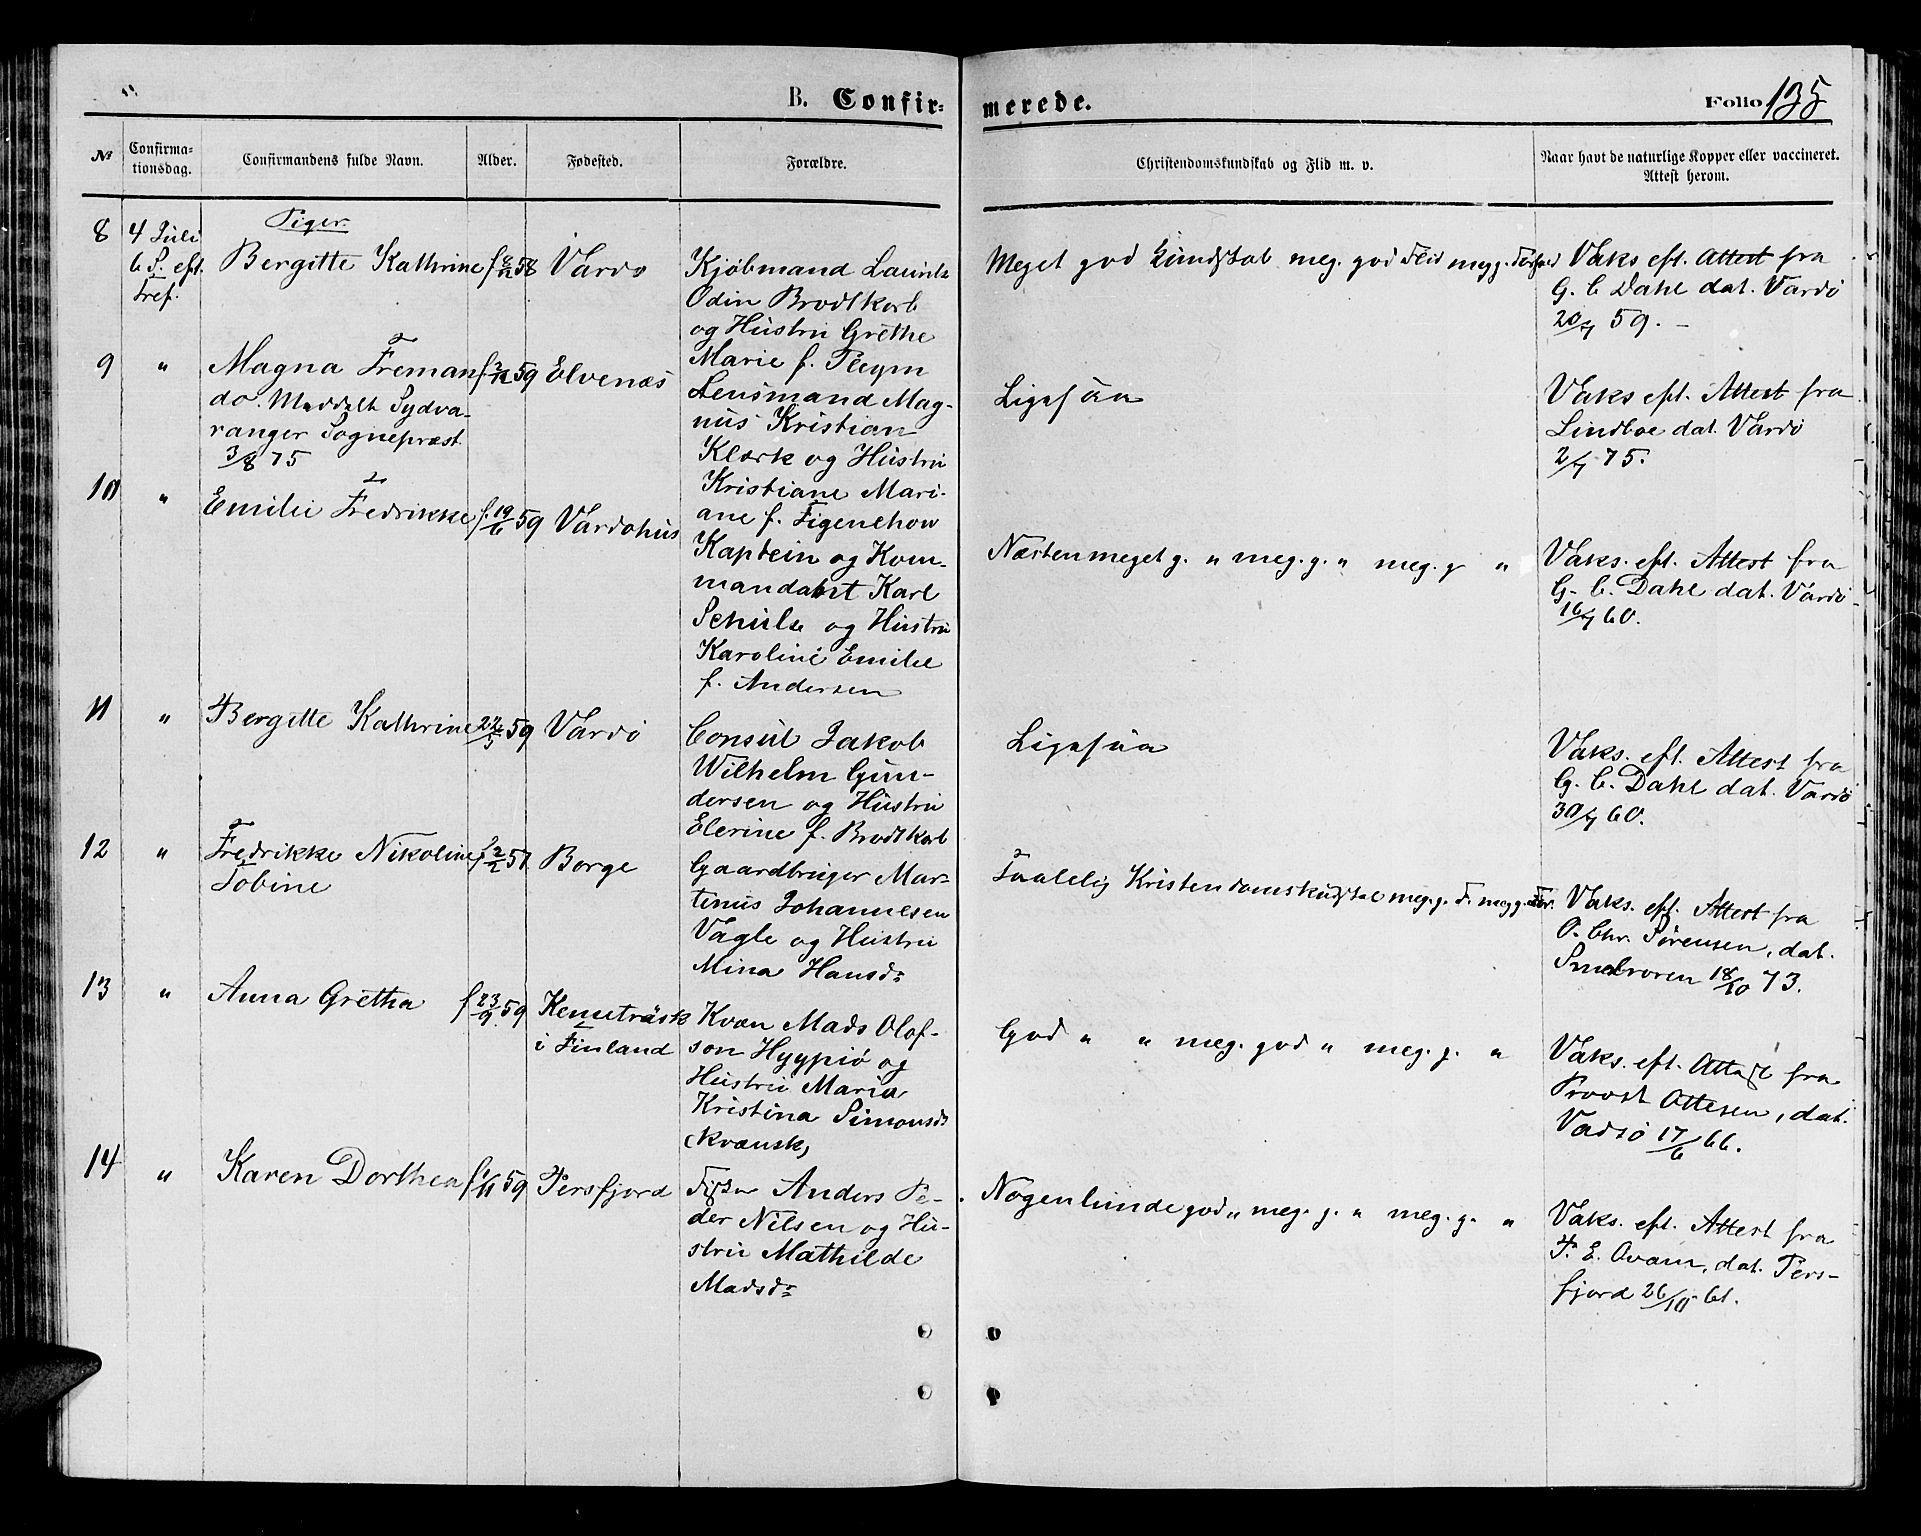 B. Confir-
merede.
Folio 135
No
Confirma-
tionsdag.
Confirmandens fulde Navn.
Alder.
Fødested.
Forældre.
Christendomskundskab og Flid m. v.
Naar havt de naturlige Kopper eller vaccineret.
Attest herom.
Piger
8
4 Juli
6 S. eft.
Tref.
Bergitte Kathrine
58
Vardø
Kjøbmand Laurits
Odin Brodtkorb
og Hustru Grethe
Marie f. Pleym
Meget god Kundskab meg. god Flid meg g. Forhold
Vaks eft. Attest fra
G. C. Dahl dat. Vardö
20/7 59. –
9
"
Magna Freman
do. Meddelt Sydva-
ranger Sognepræst
3/8 75
59
Elvenæs
Lensmand Mag-
nus Kristian
Klerk og Hustru
Kristiane Mari-
ane f. Figenchow
Ligesaa
Vaks eft. Attest fra
Lindboe dat. Vardö
2/7 75.
10
"
Emilie Fredrikke
f. 19/6 59
Vardöhus
Kaptein og Kom-
mandant Karl
Schulze og Hustru
Karoline Emilie
f. Andersen
Næsten meget g. " meg. g. " meg. g "
Vaks. eft. Attest fra
G. C. Dahl dat. Vardö
16/7 60.
11
"
Bergitte Kathrine
22/5 59
Vardö
Consul Jakob
Wilhelm Gun-
dersen og Hustru
Elerine f. Brodtkorb
Ligesaa
Vaks. eft. Attest fra
G. C. Dahl dat. Vardö
30/7 60.
12
"
Fredrikke Nikoline
Tobine
f 2/2 57
Borge
Gaardbruger Mar-
tinus Johannesen
Vagle og Hustru
Mina Hansdr
Taalelig Kristendomskundskab meg. g. F. meg g. For.
Vaks. eft. Attest fra
O. Chr. Sörensen, dat.
Smelroren 18/10 73.
13
"
Anna Gretha
f 23/9 59
Kemeträsk
i Finland
Kvæn Mads Olof-
son Hyypiö og
Hustru Maria
Kristina Simonsdr
(kvænsk)
God " " meg. god " meg. g. "
Vaks. eft. Attest fra
Provst Ottesen, dat.
Vadsö 17/6 66.
14
"
Karen Dorthea
f 1/11 59
Persfjord
Fisker Anders Pe-
der Nilsen og Hu-
stru Mathilde
Madsdr
Nogenlunde god " meg. g. " meg. g. "
Vaks. eft. Attest fra
P. E. Qvam, dat. Pers-
fjord 26/10 61.